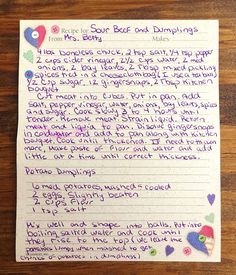 Recipe for Sour Beef and Dumplings
From Mrs. Betty Makes
4 lbs boneless chuck, 2 tsp salt, 1/4 tsp pepper
2 cups cider vinegar, 2 1/2 cups water, 2 med
onions, 2 bay leaves, 2 Tbsp mixed pickling
spices tied in a cheesecloth bag (I use a tea ball)
1/2 cup sugar, 12 gingersnaps, 2 Tbsp kitchen
bouquet
Cut meat into cubes. Put in pan, add
salt, pepper, vinegar, water, onions, bay leaves, spices
and sugar. Cook slowly 3 to 4 hours until
tender. Remove meat. Strain liquid. Return
meat and liquid to pan. Dissolve gingersnaps
in water and add to pan along with kitchen
bouquet. Cook until thickened. If need to thicken
more, make paste of flour and water and add
little at a time until correct thickness.
Potato Dumplings
6 med potatoes, mashed & cooled
2 eggs, slightly beaten
2 cups flour
1 tsp salt
Mix well and shape into balls. Put into
boiling salted water and cook until
they rise to the top (we leave the
potatoes lumpy when mashed to get
chunks of potatoes in dumplings)